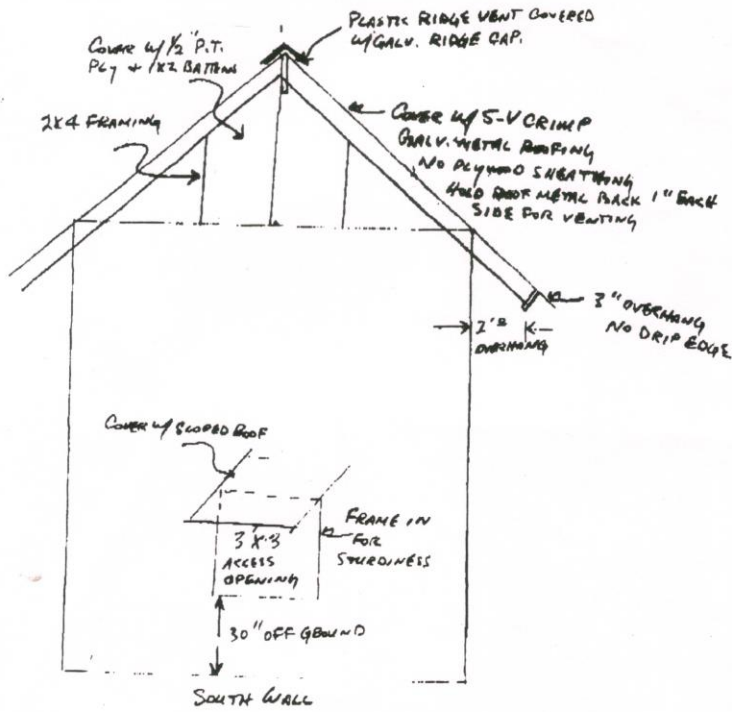 PLASTIC RIDGE VENT COVERED
W/GALV. RIDGE CAP.
COVER W/ 1/2" P.T.
PLY + 1X2 BATTENS
2X4 FRAMING
COVER W/ 5-V CRIMP
GALV. METAL ROOFING
NO PLYWOOD SHEATHING
HOLD ROOF METAL BACK 1" EACH
SIDE FOR VENTING
3" OVERHANG
NO DRIP EDGE
OVERHANG
COVER W/ SLOPED ROOF
3 X 3
ACCESS
OPENING
FRAME IN
FOR
STURDINESS
30" OFF GROUND
SOUTH WALL